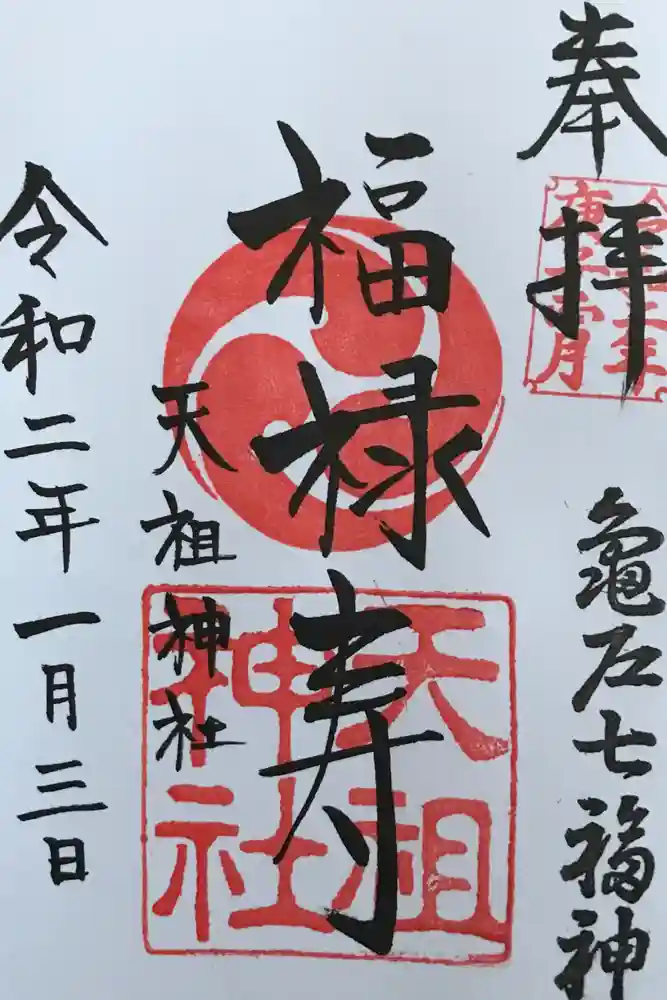 奉拝
亀戸七福神
福禄寿
天祖神社
令和二年一月三日
天祖
神社